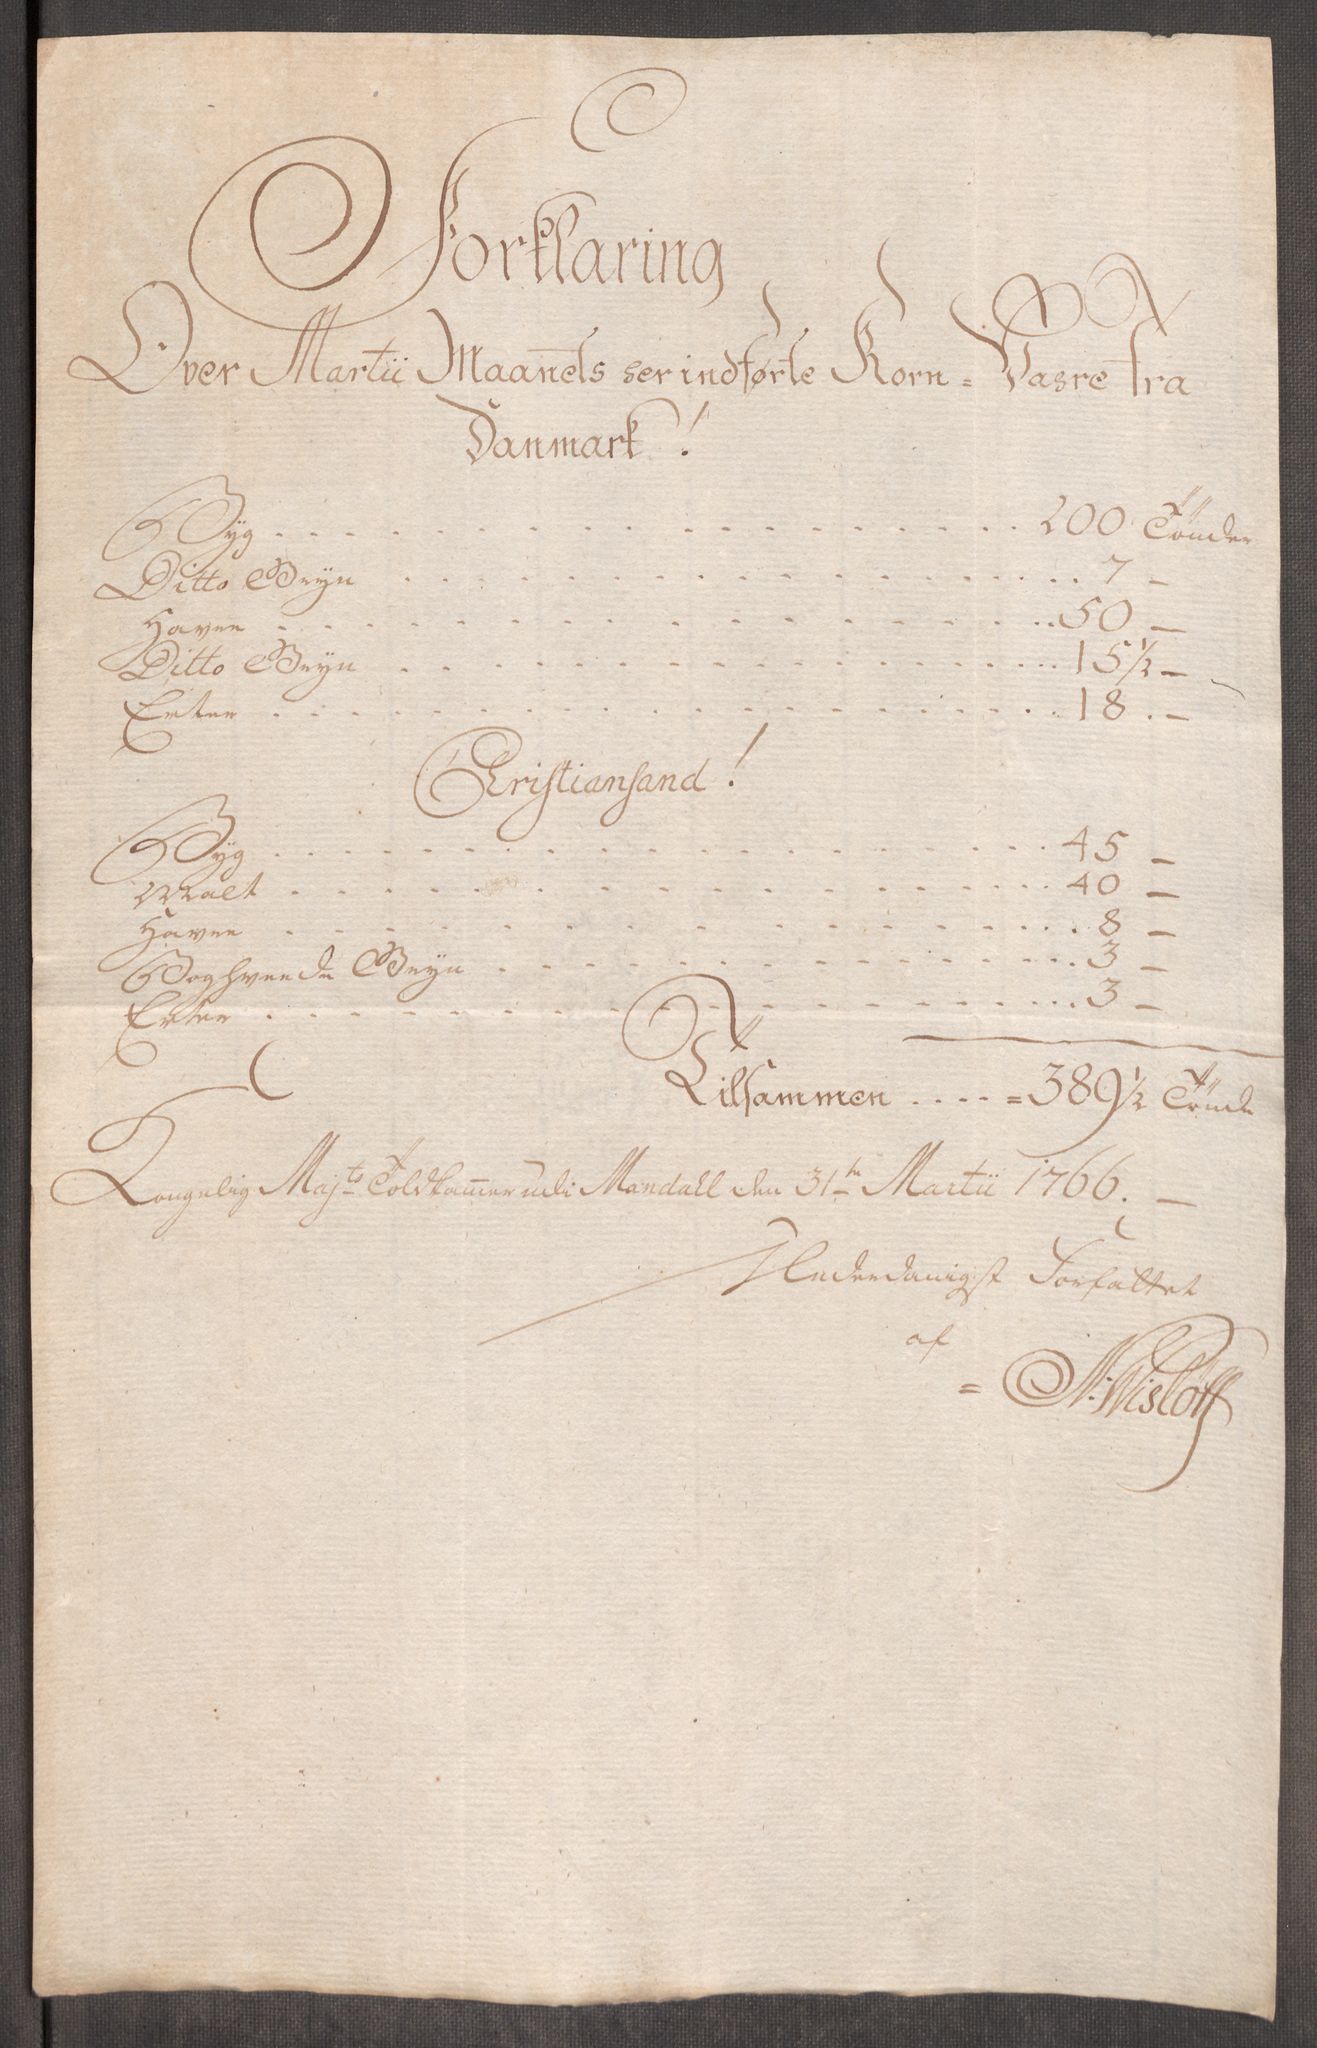 Forklaring
Over Martii Maanets her indførte Korn = Vahre fra
Danmark!
Byg . . . . . . . . . . 200 Tönder
Ditto Gryn . . . . . . . . . . 7 –
Havre . . . . . . . . . . 50 –
Ditto Gryn . . . . . . . . . . 15½ –
Erter . . . . . . . . . . 18. –
Christiansand!
Byg . . . . . . . . . . 45 –
Malt . . . . . . . . . . 40 –
Havre . . . . . . . . . . 8 –
Boghveede Gryn . . . . . . . . . . 3 –
Erter . . . . . . . . . . 3 –
Tilsammen . . . . = 389½ Tönde
Kongelig Majts Toldkamer udi Mandall den 31te Martii 1766. –
Underdanigst Forfattet
af
= N: Wislöff